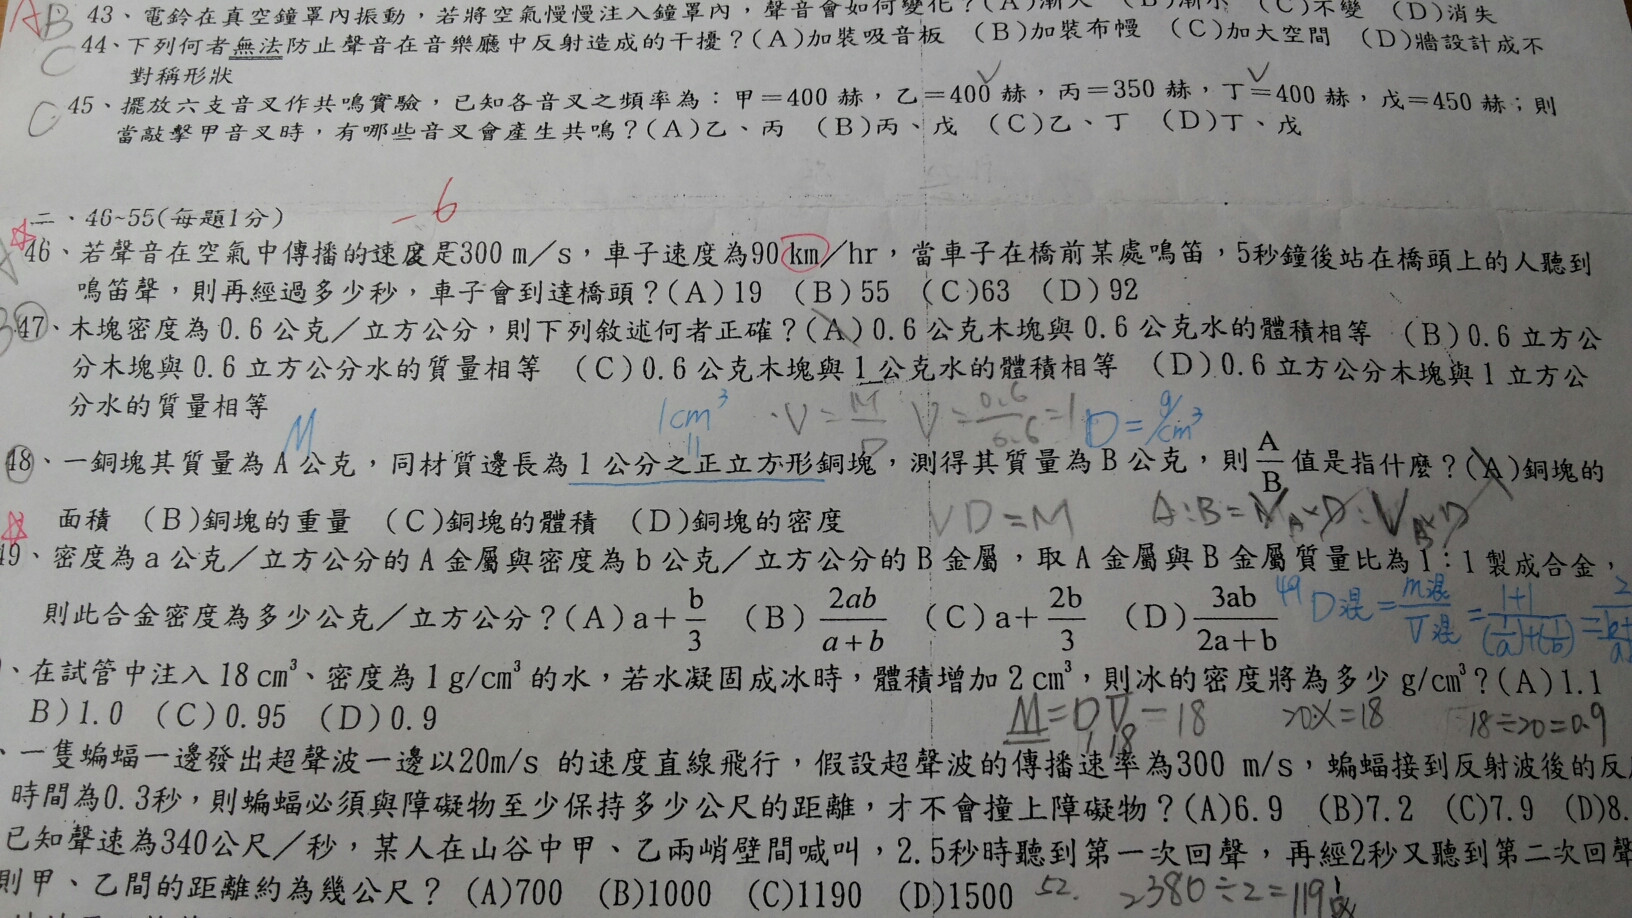 43、電鈴在真空鐘罩內振動，若將空氣慢慢注入鐘罩內，聲音會如何變化？(A)漸大 (B)漸小 (C)不變 (D)消失
44、下列何者無法防止聲音在音樂廳中反射造成的干擾？(A)加裝吸音板 (B)加裝布幔 (C)加大空間 (D)牆設計成不
對稱形狀
45、擺放六支音叉作共鳴實驗，已知各音叉之頻率為：甲＝400 赫，乙＝400 赫，丙＝350 赫，丁＝400 赫，戊＝450 赫；則
當敲擊甲音叉時，有哪些音叉會產生共鳴？(A)乙、丙 (B)丙、戊 (C)乙、丁 (D)丁、戊
－6
二、46~55(每題1分)
46、若聲音在空氣中傳播的速度是300 m／s，車子速度為90 km／hr，當車子在橋前某處鳴笛，5秒鐘後站在橋頭上的人聽到
鳴笛聲，則再經過多少秒，車子會到達橋頭？(A)19 (B)55 (C)63 (D)92
47、木塊密度為 0.6 公克／立方公分，則下列敘述何者正確？(A)0.6 公克木塊與 0.6 公克水的體積相等 (B)0.6 立方公
分木塊與 0.6 立方公分水的質量相等 (C)0.6 公克木塊與 1 公克水的體積相等 (D)0.6 立方公分木塊與 1 立方公
分水的質量相等
M 1cm³ V=M/D V=0.6/0.6=1 D=g/cm³
48、一銅塊其質量為 A 公克，同材質邊長為 1 公分之正立方形銅塊，測得其質量為 B 公克，則 A/B 值是指什麼？(A)銅塊的
面積 (B)銅塊的重量 (C)銅塊的體積 (D)銅塊的密度
VD=M A:B=V_A×D:V_B×D
49、密度為 a 公克／立方公分的 A 金屬與密度為 b 公克／立方公分的 B 金屬，取 A 金屬與 B 金屬質量比為 1：1 製成合金，
則此合金密度為多少公克／立方公分？(A) a＋b/3 (B) 2ab/a+b (C) a＋2b/3 (D) 3ab/2a+b
49 D混=m混/V混=1+1/(1/a)+(1/b)=
、在試管中注入 18 cm³、密度為 1 g/cm³ 的水，若水凝固成冰時，體積增加 2 cm³，則冰的密度將為多少 g/cm³？(A)1.1
B)1.0 (C)0.95 (D)0.9
M=DV=18 20·x=18 18÷20=0.9
1 18
、一隻蝙蝠一邊發出超聲波一邊以20m/s 的速度直線飛行，假設超聲波的傳播速率為300 m/s，蝙蝠接到反射波後的反
時間為0.3秒，則蝙蝠必須與障礙物至少保持多少公尺的距離，才不會撞上障礙物？(A)6.9 (B)7.2 (C)7.9 (D)8.
已知聲速為340公尺／秒，某人在山谷中甲、乙兩峭壁間喊叫，2.5秒時聽到第一次回聲，再經2秒又聽到第二次回聲
則甲、乙間的距離約為幾公尺？ (A)700 (B)1000 (C)1190 (D)1500
52. 2380÷2=119